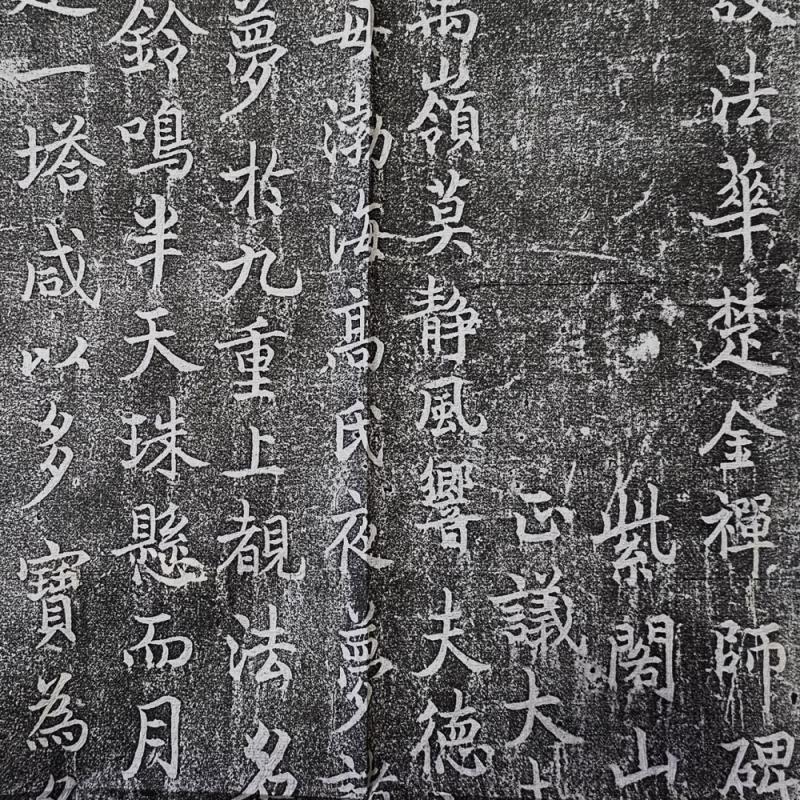 法華楚金禪師碑
紫閣山
正議大
嶺莫靜風響夫德
母渤海高氏夜夢
夢於九重上覩法名
鈴鳴半天珠懸而月
一塔咸以多寶為